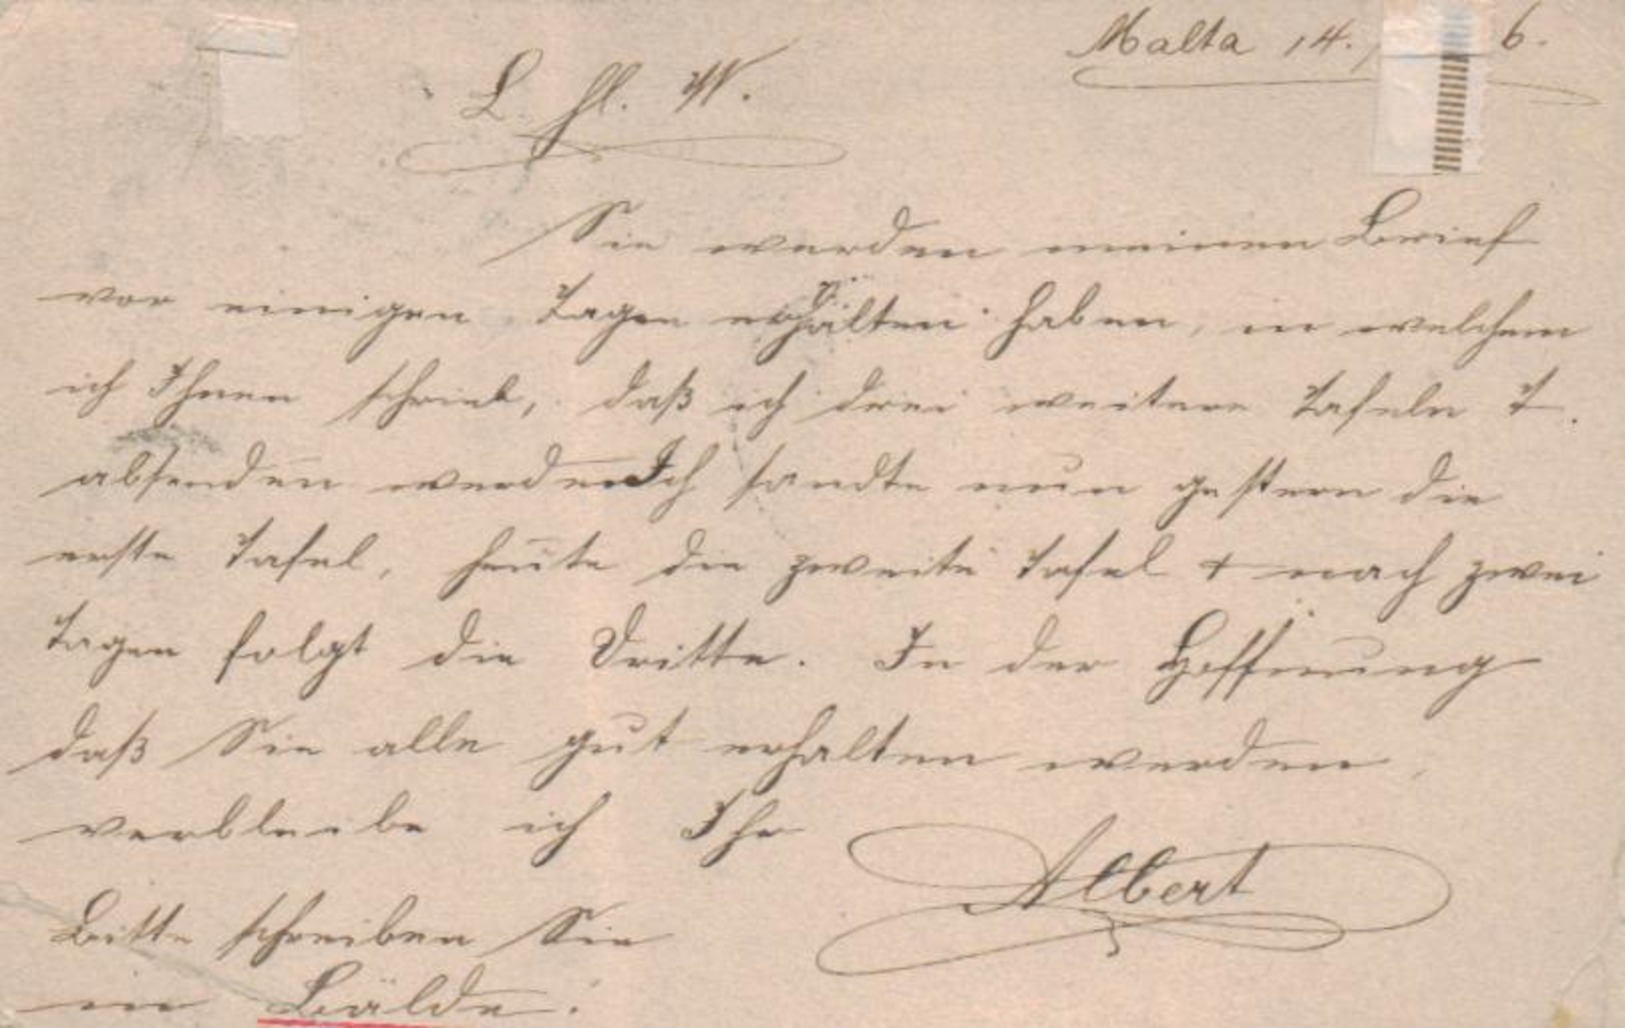 Malta 14. 6.
L. Hl. W.
Sie werden meinen Brief
vor einigen Tagen erhalten haben, in welchem
ich Ihnen schrieb, daß ich drei weitere Tafeln T.
absenden werde Ich sandte nun gestern die
erste Tafel, heute die zweite Tafel + nach zwei
Tagen folgt die Dritte. In der Hoffnung
daß Sie alle gut erhalten werden,
verbleibe ich Ihr
Albert
Bitte schreiben Sie
in Bälde.